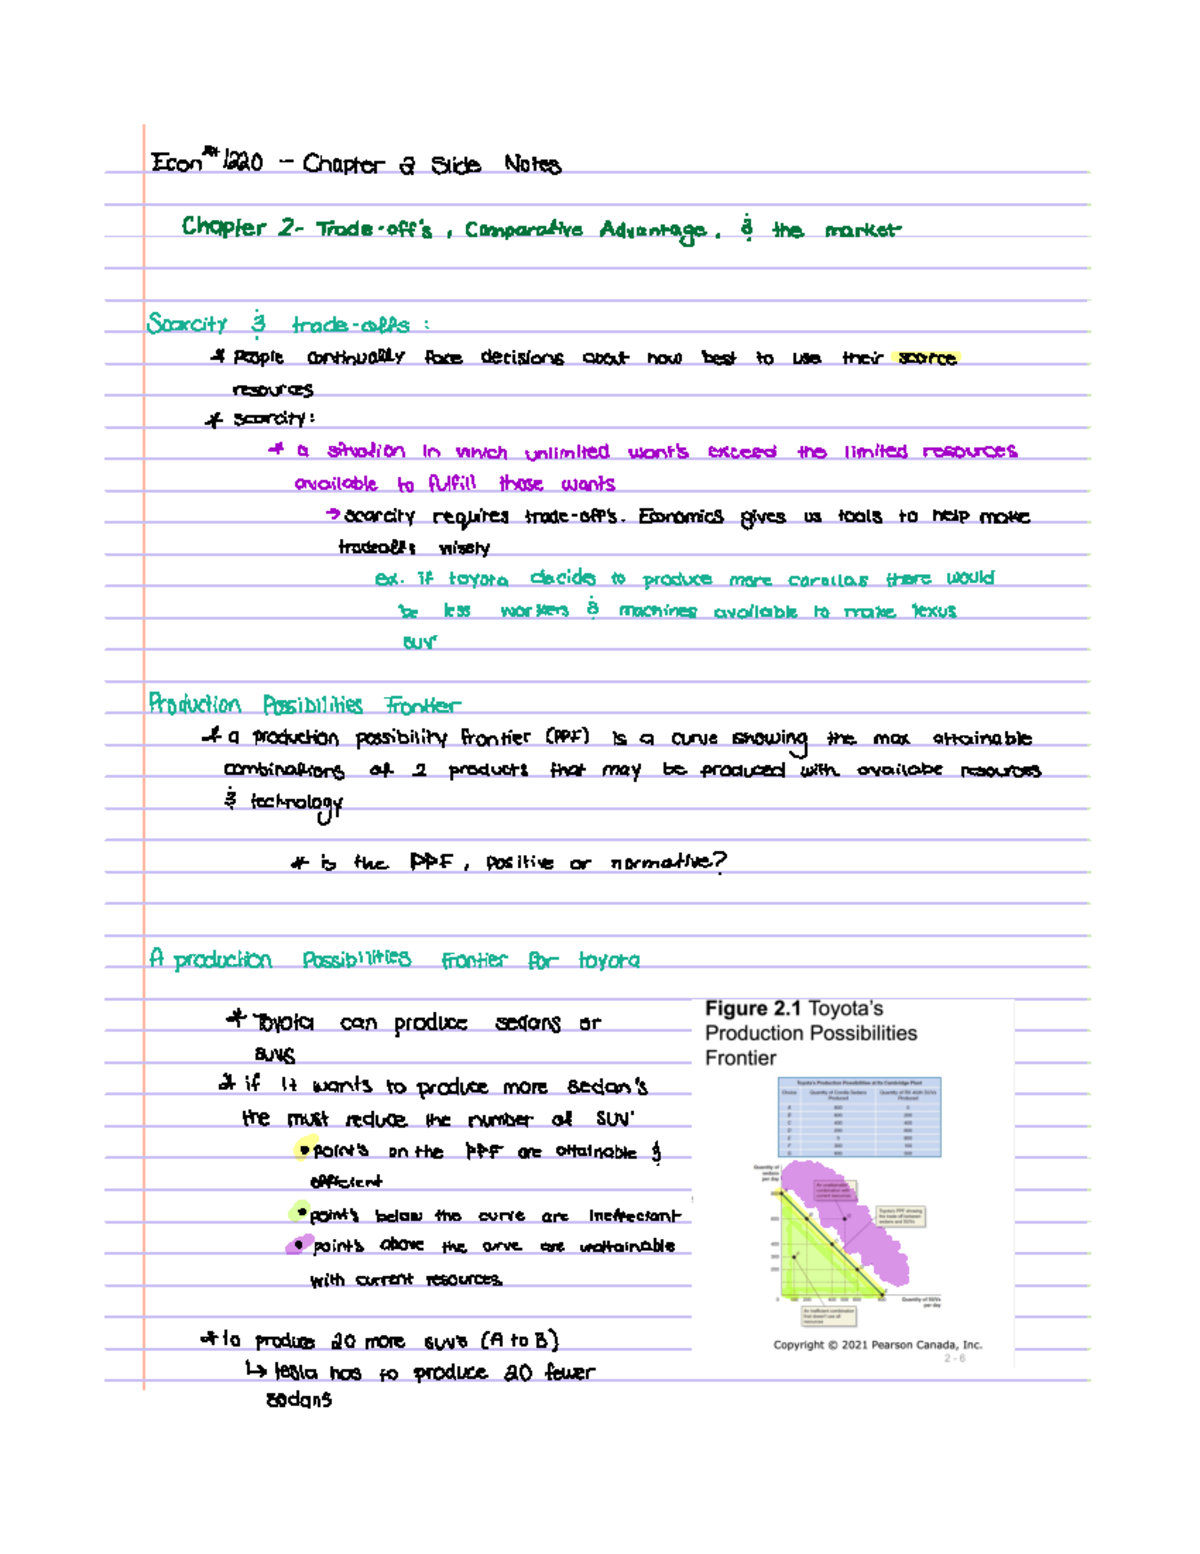 Econ#1220 - Chapter 2 Slide Notes
Chapter 2- Trade-off's, Comparative Advantage, & the market
Scarcity & trade-offs:
* People continually face decisions about how best to use their scarce
resources
* scarcity:
* a situation in which unlimited want's exceed the limited resources
available to fulfill those wants
→ scarcity requires trade-off's. Economics gives us tools to help make
tradeoffs wisely
ex. if toyota decides to produce more corollas there would
be less workers & machines available to make lexus
SUV'
Production Possibilities Frontier
* a production possibility frontier (PPF) is a curve showing the max attainable
combinations of 2 products that may be produced with availabe resources
& technology
* is the PPF, positive or normative?
A production Possibilities frontier for toyota
* Toyota can produce sedans or
suvs
* if it wants to produce more sedan's
the must reduce the number of SUV'
• point's on the PPF are attainable &
efficient
• point's below the curve are
• point's above the curve are unattainable
with current resources.
* to produce 20 more suvs (A to B)
↳ tesla has to produce 20 fewer
sedans
Figure 2.1 Toyota's
Production Possibilities
Frontier
Toyota's Production Possibilities at its Cambridge Plant
Choice
Quantity of
sedans
per day
Quantity of SUVs
per day
Copyright © 2021 Pearson Canada, Inc.
2 - 6